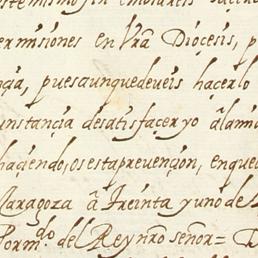 ermisiones en Vrã Diocesis, p
çia, puesaunquedeveis hacerlo
unstançia desatisfaceryo âlamu
haçiendo, osestaprevençion, enquec
Zaragoza â treinta yunode
Por m.do del Reynrõ señor = D